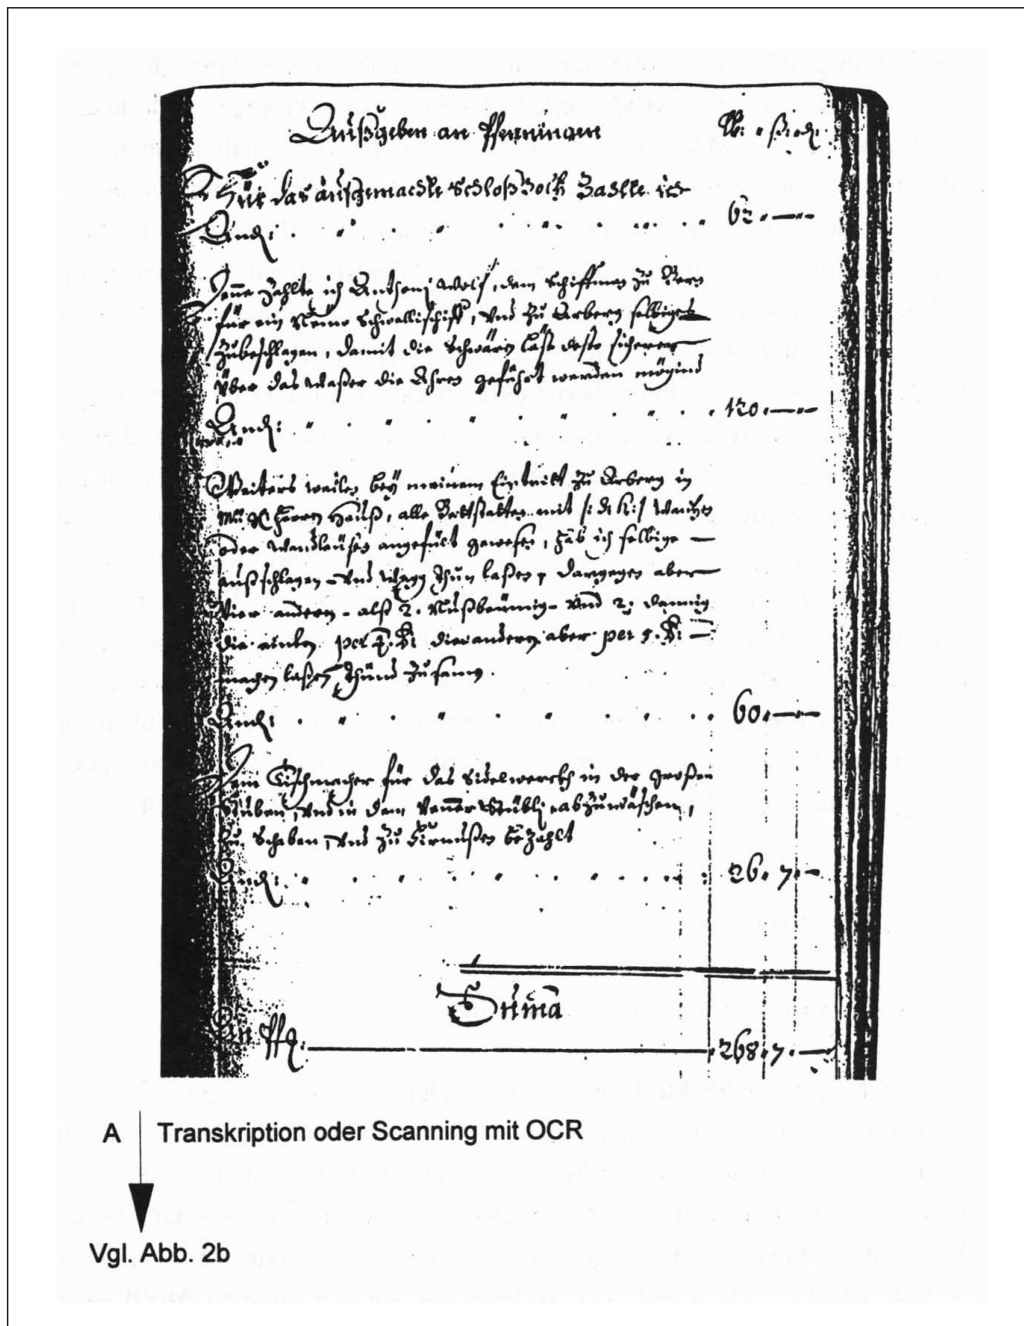 Außgeben an Pfenningen ₰. ß. d.
Für das außgemachte Schloßdach Zahlte ich
And. 62. — —
Denne Zahlte ich Anthonj Wolf, dem Schiffman zu
für ein Neüw Schwallischiff, und zu Arberg selbiges
Zubeschlagen, damit die Schwäry Läst desto sicherer
über das Waßer die Ahren geführt werden mögind
And. 120. — —
Weiters weilen bey meinem Eintritt zu Arberg in
Mr. gH. Herren Hauß, alle Bettstatten mit
oder Wandleüsen angefült gewesen, hab ich selbige
außschlagen und wägg thun laßen, dargegen aber
Vier andere, alß 2. Nußbäumig und 2. dannig
die einten per ₰. die anderen aber per 5. ₰.
machen laßen, thund zusamen.
And. 60. — —
Dem Tischmacher für das Täfelwerch in der großen
Stuben, und in dem Venner Stübli abzuwäschen,
Zu Schaben, und zu Firnußen bezahlt
And. 26. 7. —
Suma
An Pfg. 268. 7. —
A Transkription oder Scanning mit OCR
Vgl. Abb. 2b